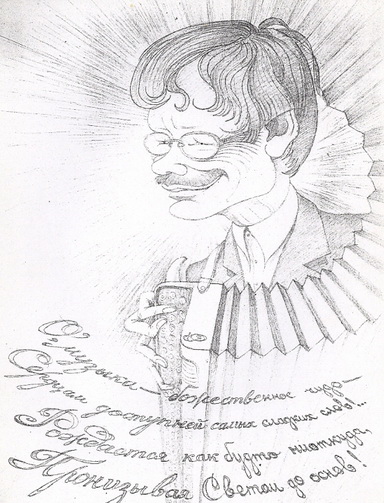 О музыки божественное чудо —
Сердцам доступней самых сладких слов!...
Рождается как будто ниоткуда,
Пронизывая Светом до основ!